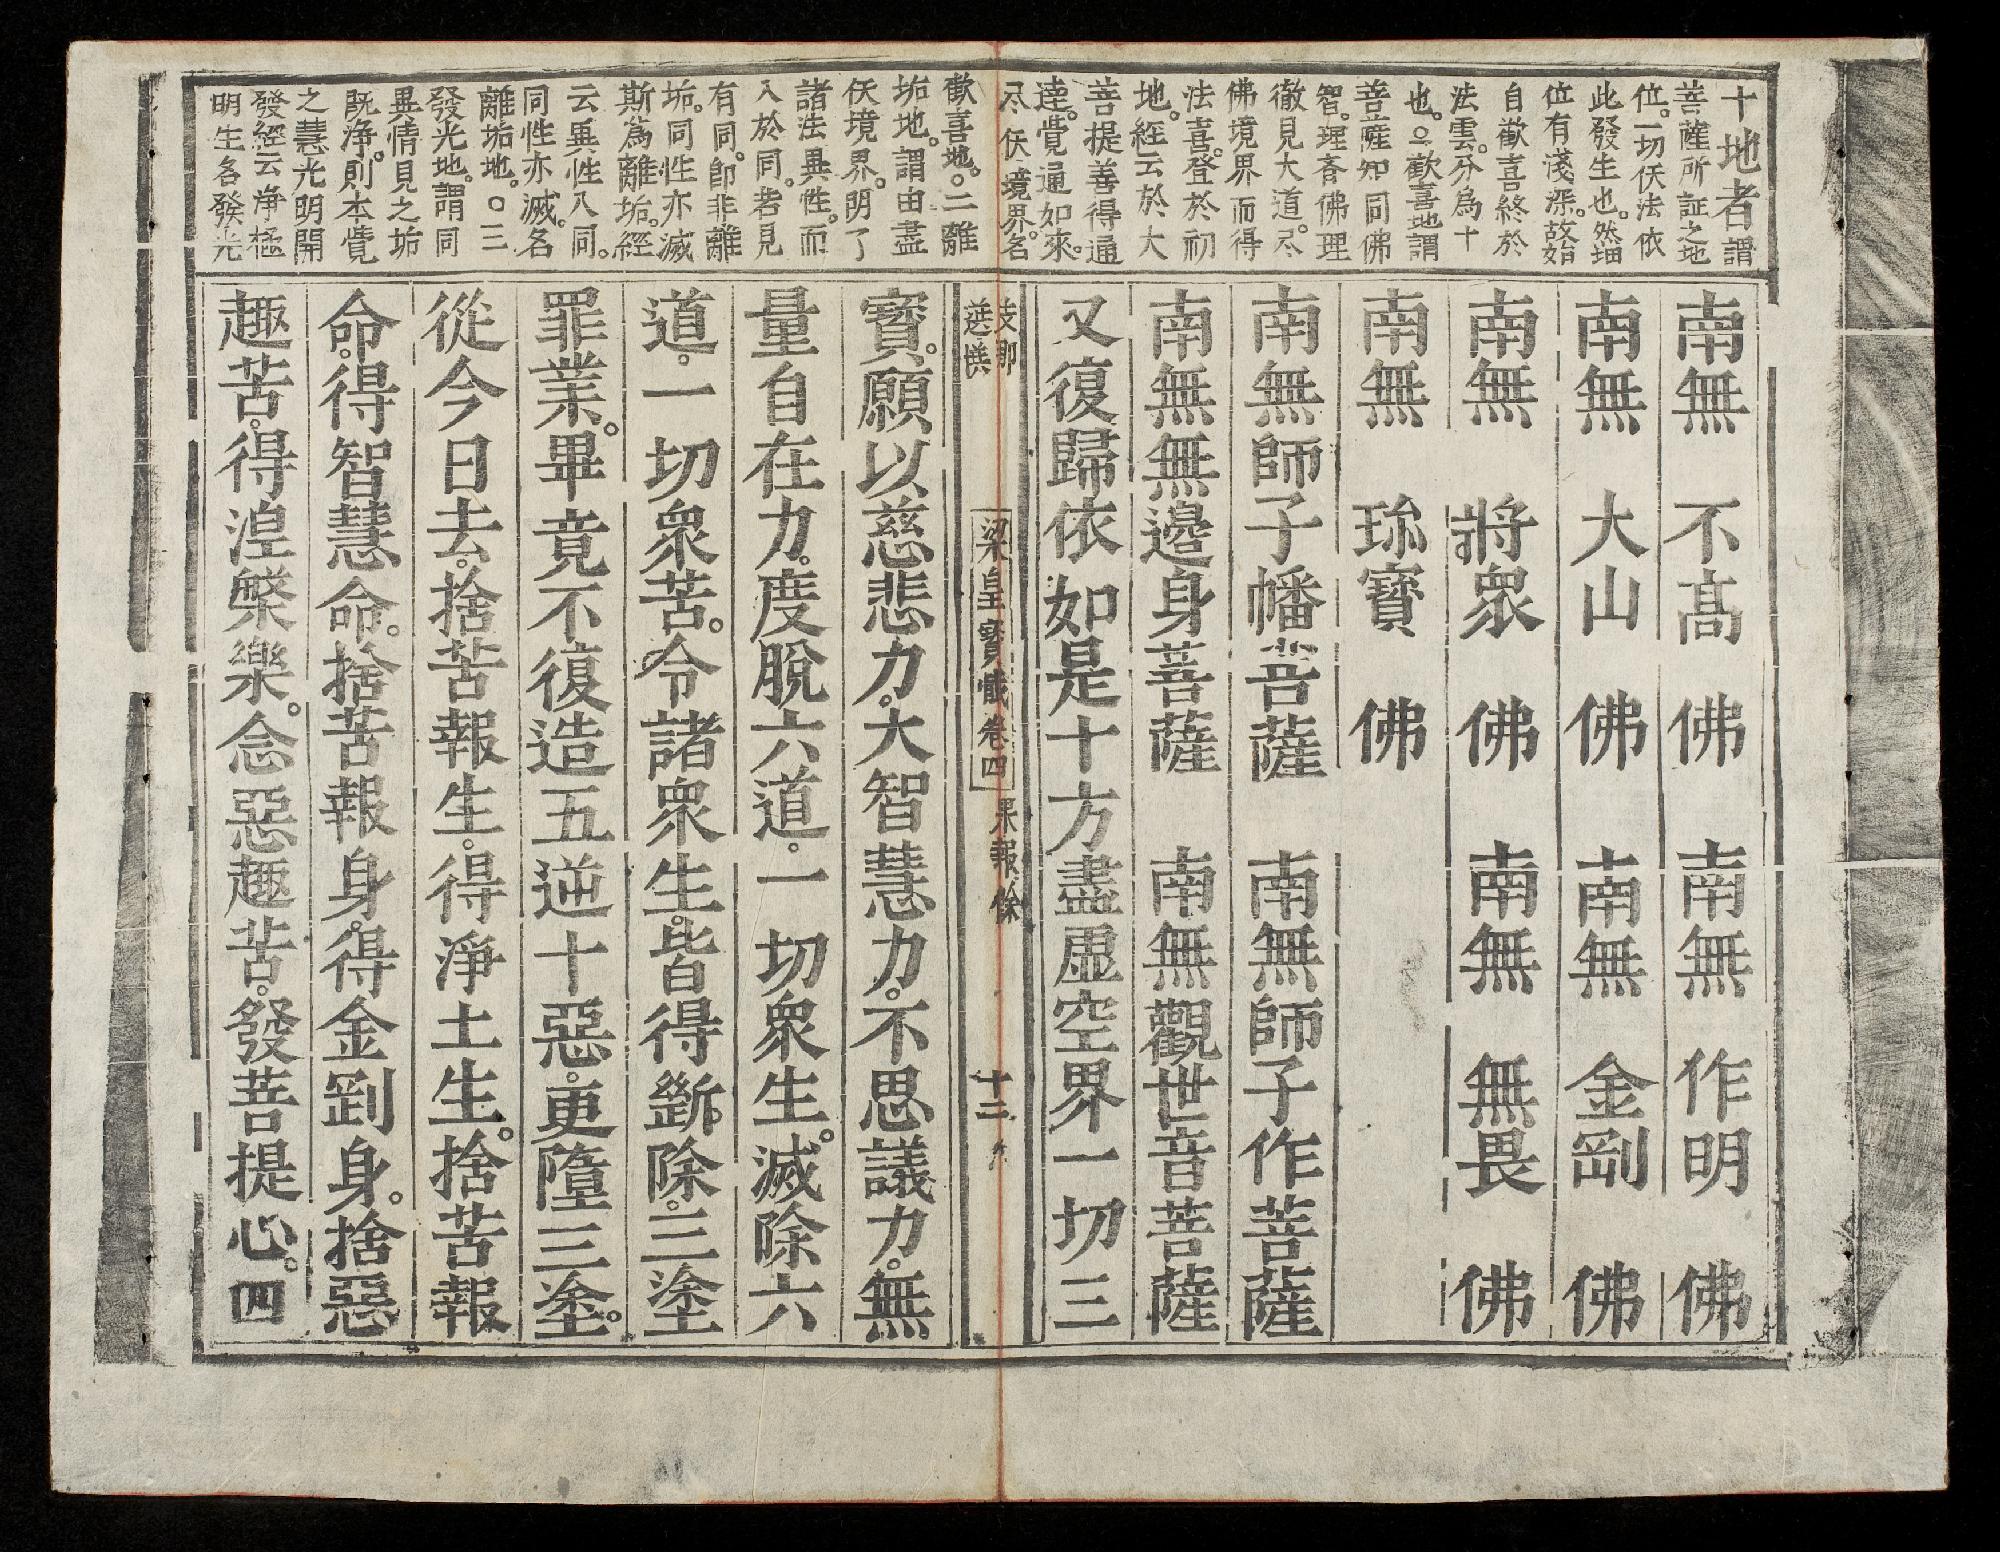 十地者謂
菩薩所証之地
位。一切佛法依
此發生也。然地
位有淺深。故始
自歡喜終於
法雲。分為十
也。○歡喜地謂
菩薩知同佛
智。理齊佛理
徹見大道。尽
佛境界而得
法喜。登於初
地。經云於大
菩提善得通
達。覺通如來。
尽佛境界。名
歡喜地。○二離
垢地。謂由盡
佛境界。明了
諸法異性。而
入於同。若見
有同。即非離
垢。同性亦滅
斯為離垢。經
云異性入同。
同性亦滅。名
離垢地。○三
發光地。謂同
異情見之垢
既淨。則本覺
之慧光明開
發經云淨極
明生名發光
南無 不高 佛 南無 作明 佛
南無 大山 佛 南無 金剛 佛
南無 將衆 佛 南無 無畏 佛
南無 珎寶 佛
南無師子幡菩薩 南無師子作菩薩
南無無邊身菩薩 南無觀世音菩薩
又復歸依如是十方盡虛空界一切三
支那
選譔
梁皇寶懺卷四 果報餘 十二
寶。願以慈悲力。大智慧力。不思議力。無
量自在力。度脫六道。一切衆生。滅除六
道。一切衆苦。令諸衆生。皆得斷除。三塗
罪業。畢竟不復造五逆十惡。更墮三塗。
從今日去。捨苦報生。得淨土生。捨苦報
命。得智慧命。捨苦報身。得金剛身。捨惡
趣苦。得涅槃樂。念惡趣苦。發菩提心。四